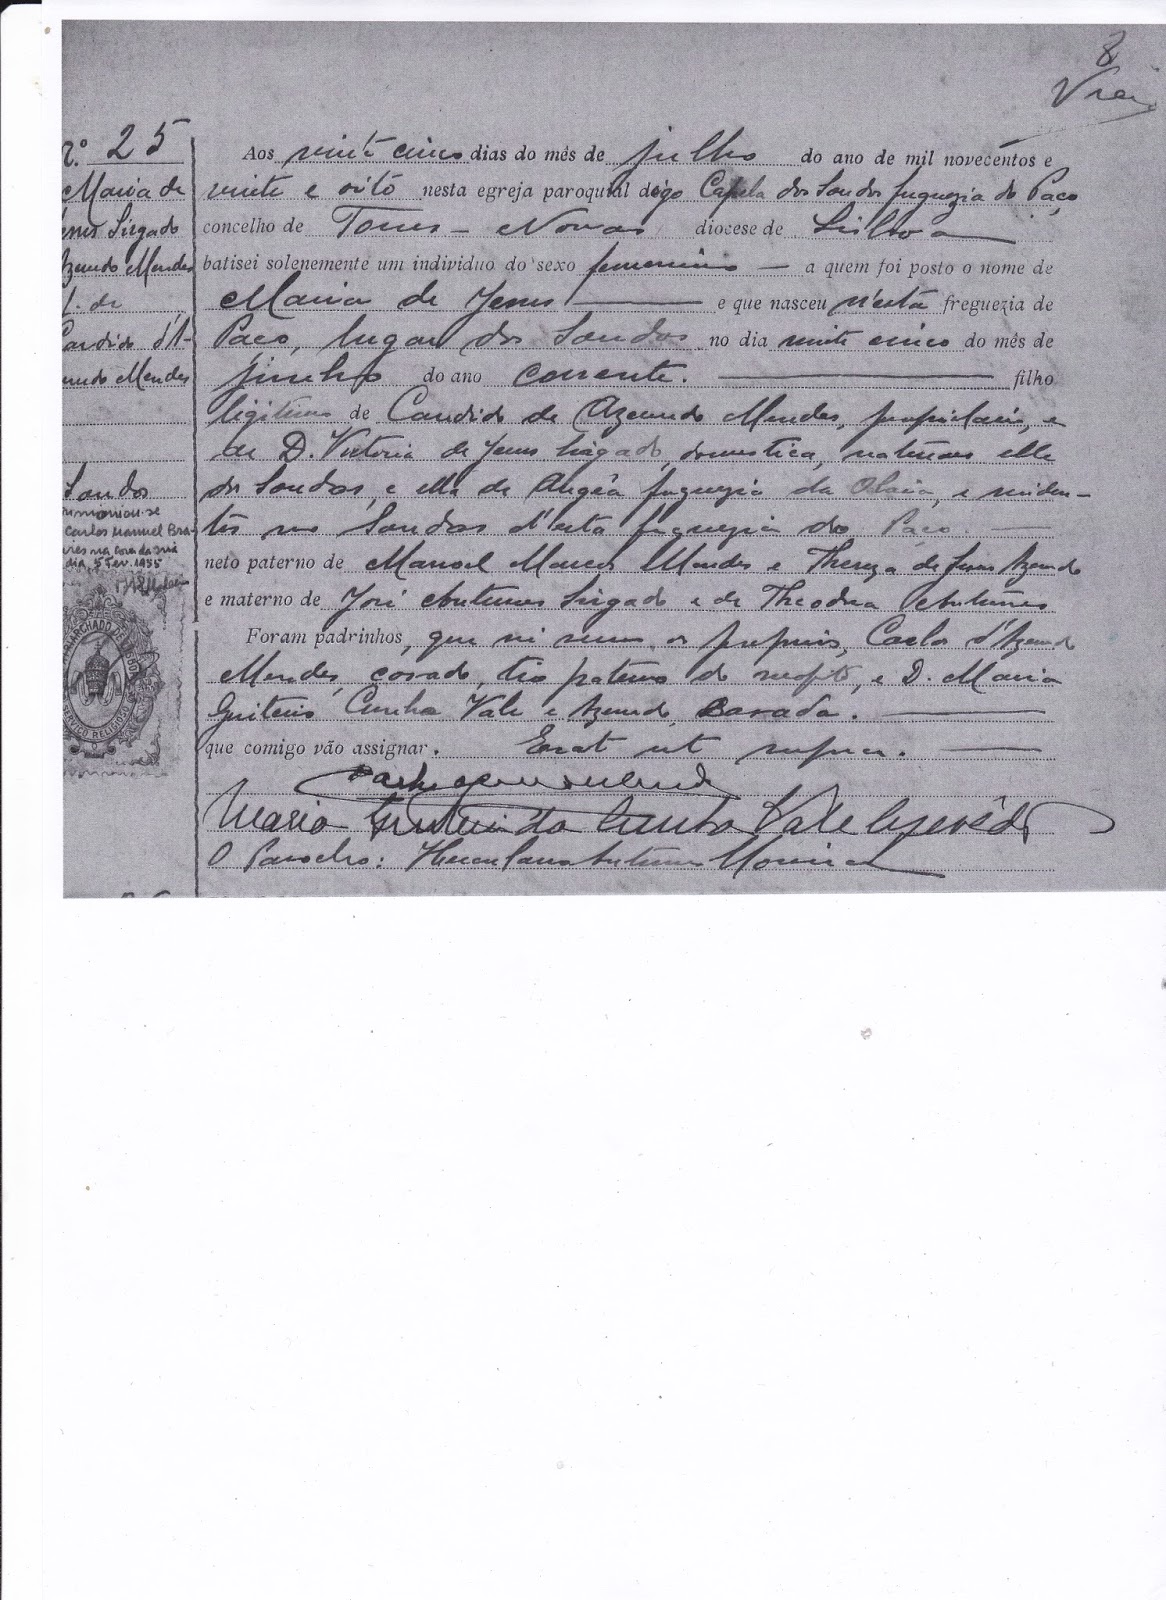 8
N.º 25
Maria de
Jesus Sirgado
Azevedo Mendes
f. de
Candido d'A-
zevedo Mendes
Soudos
Carlos Manuel
na Cova da Iria
dia, 5 Fev. 1955
PATRIARCHADO DE LISBOA
SERVIÇO RELIGIOSO
Aos vinte cinco dias do mês de julho do ano de mil novecentos e
vinte e oito nesta egreja paroquial digo Capela dos Soudos freguezia do Paço,
concelho de Torres-Novas diocese de Lisboa
batisei solenemente um individuo do sexo femenino — a quem foi posto o nome de
Maria de Jesus — e que nasceu n'esta freguezia de
Paço, lugar dos Soudos no dia vinte cinco do mês de
junho do ano corrente. — filho
legitimo de Candido de Azevedo Mendes, proprietario, e
de D. Victoria de Jesus Sirgado, domestica, naturaes elle
dos Soudos, e ella de Argêa freguezia da Olaia, e residen-
tes nos Soudos d'esta freguezia do Paço. —
neto paterno de Manoel Marcos Mendes e Thereza de Jesus Azevedo
e materno de José Antunes Sirgado e de Theodora Antunes
Foram padrinhos, que sei serem os proprios, Carlos d'Azevedo
Mendes, casado, tio paterno do neofito, e D. Maria
Cunha Vale e Azevedo, Casada. —
que comigo vão assignar. Erat ut supra. —
Carlos Azevedo Mendes
Maria da Cunha Vale Azevêdo
O Parocho: Herculano Antunes Moreira